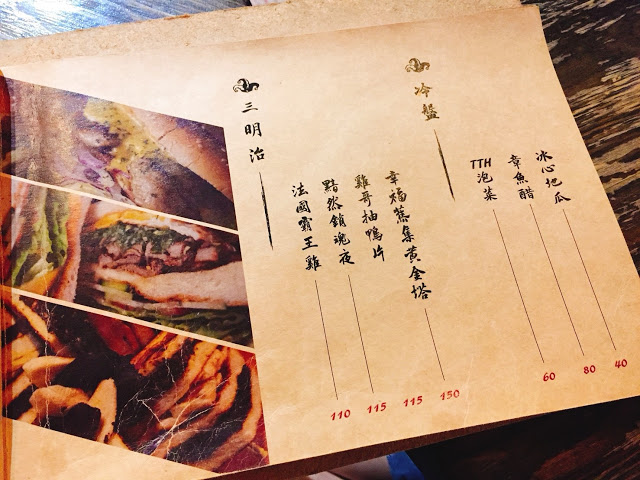 冷盤
冰心地瓜 40
章魚醋 80
TTH泡菜 60
三明治
幸福蒸集黃金塔 150
雞哥抽鴨片 115
黯然銷魂夜 115
法國霸王雞 110